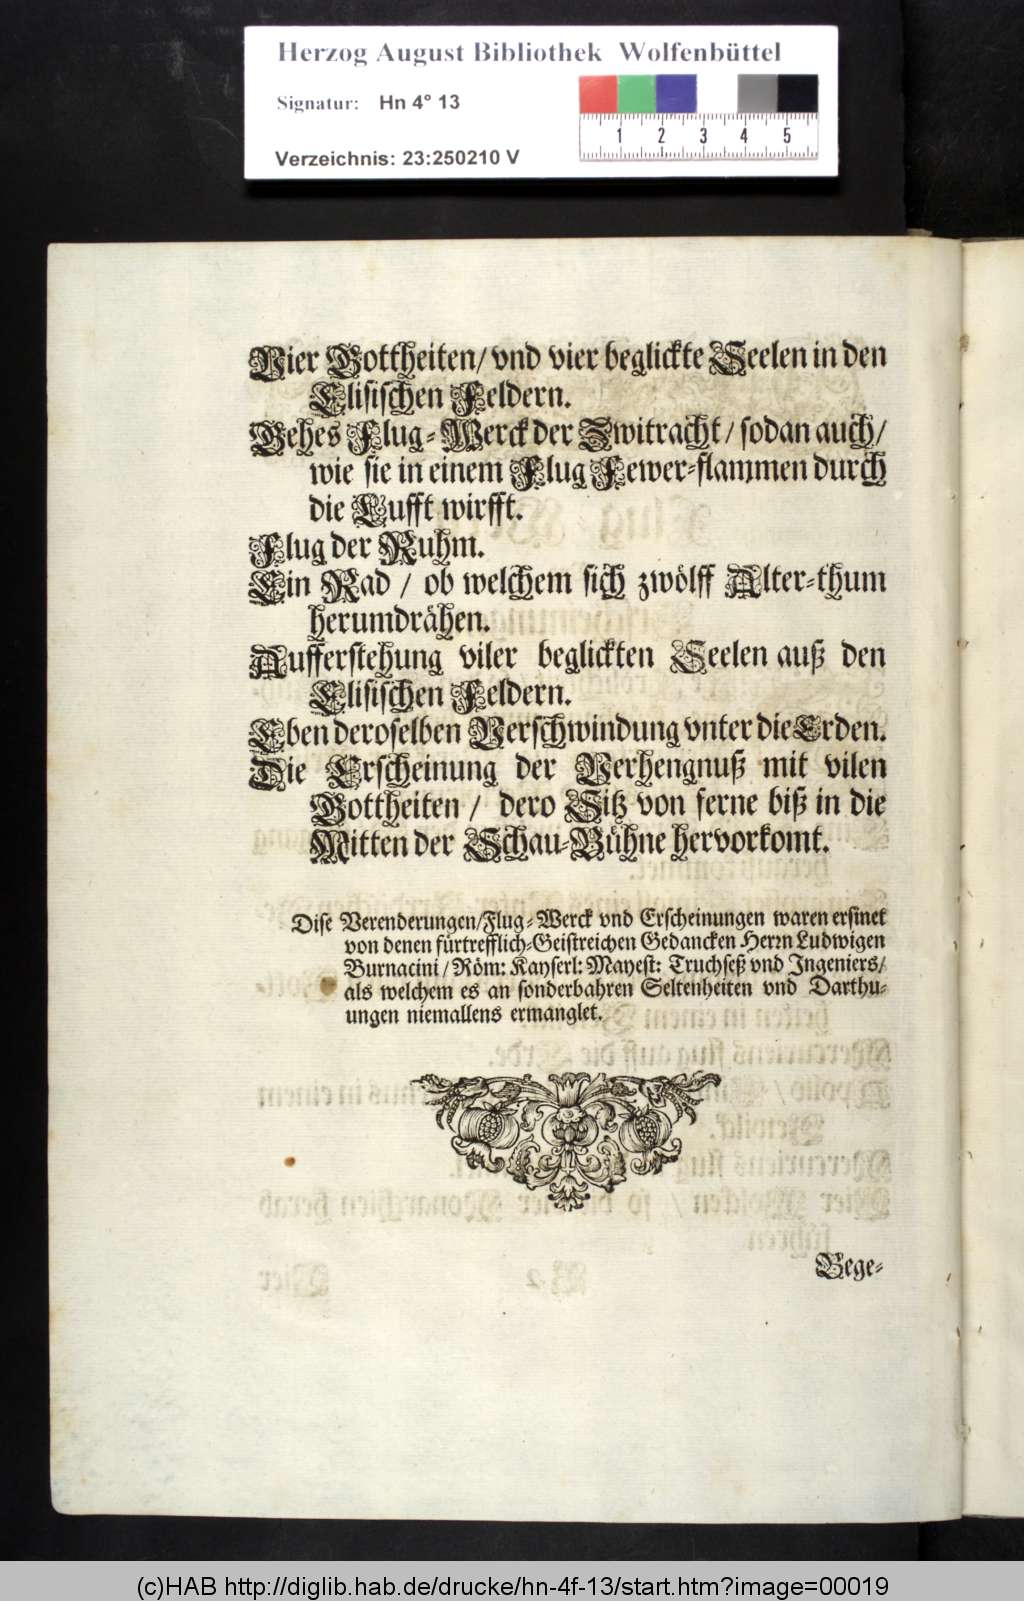 Herzog August Bibliothek Wolfenbüttel
Signatur: Hn 4° 13
Verzeichnis: 23:250210 V
1 2 3 4 5
Vier Gottheiten/ vnd vier beglickte Seelen in den
Elisischen Feldern.
Gehes Flug-Werck der Zwitracht/ sodan auch/
wie sie in einem Flug Fewer-flammen durch
die Lufft wirfft.
Flug der Ruhm.
Ein Rad / ob welchem sich zwölff Alter-thum
herumdrähen.
Aufferstehung viler beglickten Seelen auß den
Elisischen Feldern.
Eben deroselben Verschwindung vnter die Erden.
Die Erscheinung der Verhengnuß mit vilen
Gottheiten / dero Sitz von ferne biß in die
Mitten der Schau-Bühne hervorkomt.
Dise Verenderungen/Flug-Werck vnd Erscheinungen waren ersinet
von denen fürtrefflich-Geistreichen Gedancken Herrn Ludwigen
Burnacini / Röm: Kayserl: Mayest: Truchseß vnd Ingeniers/
als welchem es an sonderbahren Seltenheiten vnd Darthu-
ungen niemallens ermanglet.
Bege-
(c)HAB http://diglib.hab.de/drucke/hn-4f-13/start.htm?image=00019